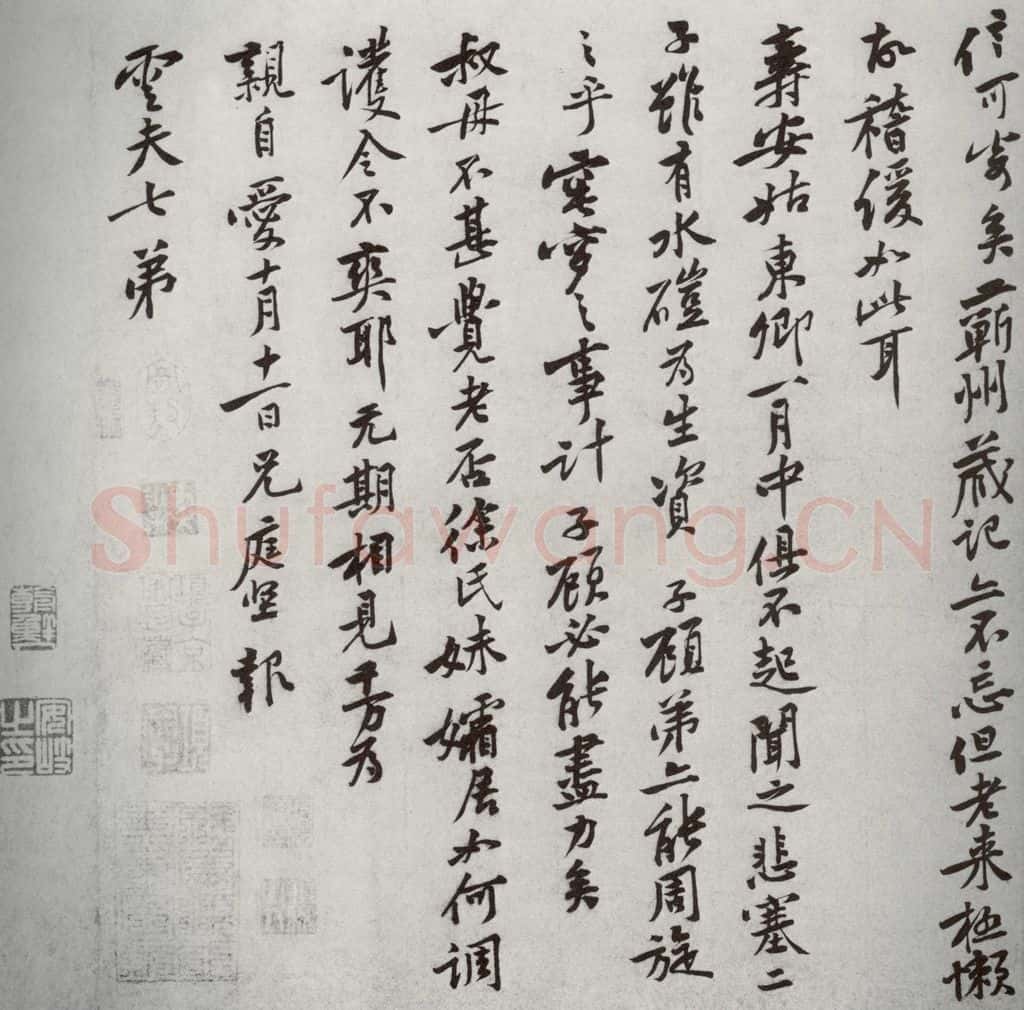 信可安矣蘄州藏記亦不忘但老来極懶
故稽緩如此耳
壽安姑東卿一月中俱不起聞之悲塞二
子雖有水磑為生資子顧弟亦能周旋
之乎窀穸之事計子顧必能盡力矣
叔母不甚覺老否徐氏妹孀居如何調
護令不爽耶未期相見千萬為
親自愛十月十一日兄庭堅報
雲夫七弟
Shufawang.CN